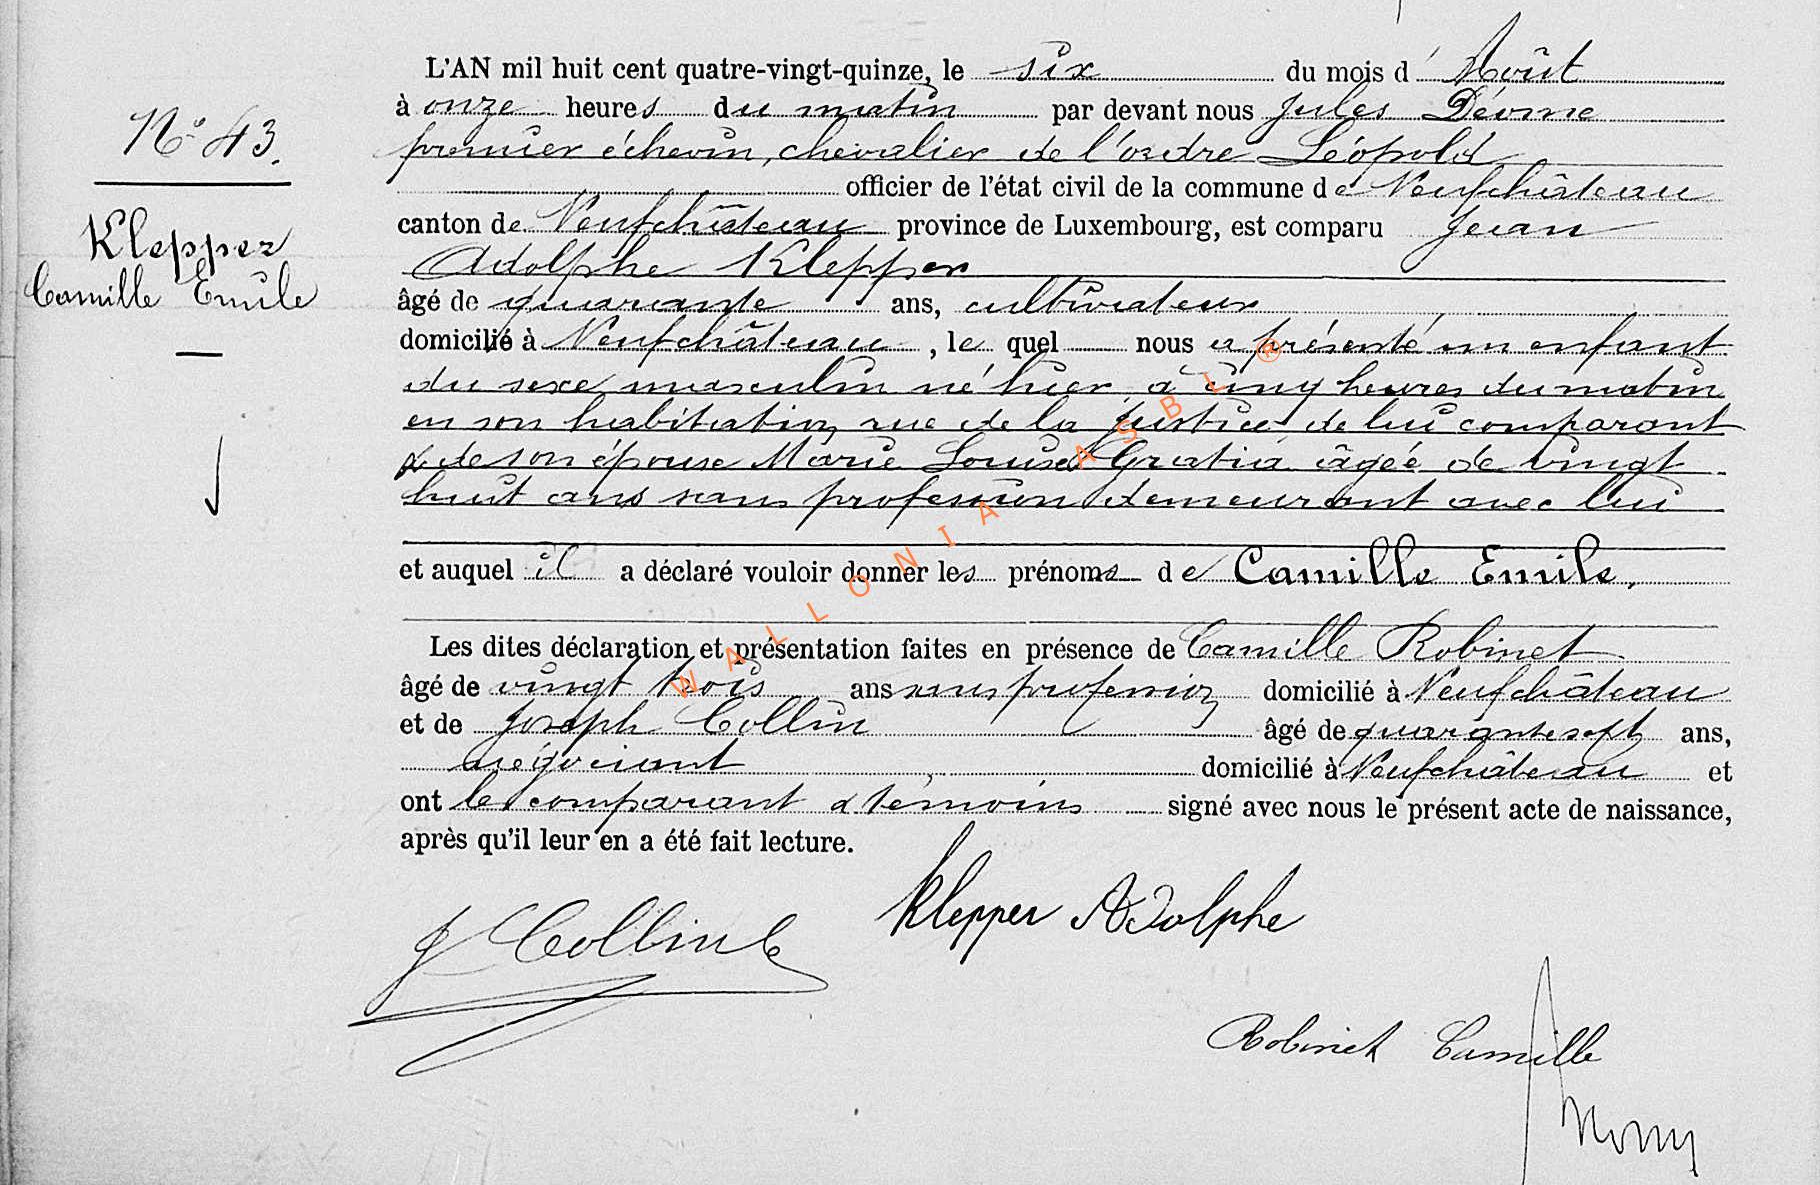 L'AN mil huit cent quatre-vingt-quinze, le six du mois d'Août
N° 43.
à onze heures du matin par devant nous Jules
premier échevin, chevalier de l'ordre Léopold
officier de l'état civil de la commune de Neufchâteau
canton de Neufchâteau province de Luxembourg, est comparu Jean
Klepper
Adolphe Klepper
Camille Emile
âgé de quarante ans, cultivateur
domicilié à Neufchâteau, le quel nous a présenté un enfant
du sexe masculin né hier à cinq heures du matin
en son habitation rue de la Justice de lui comparant
& de son épouse Marie Louise Gratia âgée de vingt
huit ans sans profession demeurant avec lui
et auquel il a déclaré vouloir donner les prénoms de Camille Emile.
Les dites déclaration et présentation faites en présence de Camille Robinet
âgé de vingt trois ans sans profession domicilié à Neufchâteau
et de Joseph Collin âgé de quarante sept ans,
négociant domicilié à Neufchâteau et
ont les comparant & témoins signé avec nous le présent acte de naissance,
après qu'il leur en a été fait lecture.
WALLONIA ASBL ®
Klepper Adolphe
J Collin
Robinet Camille